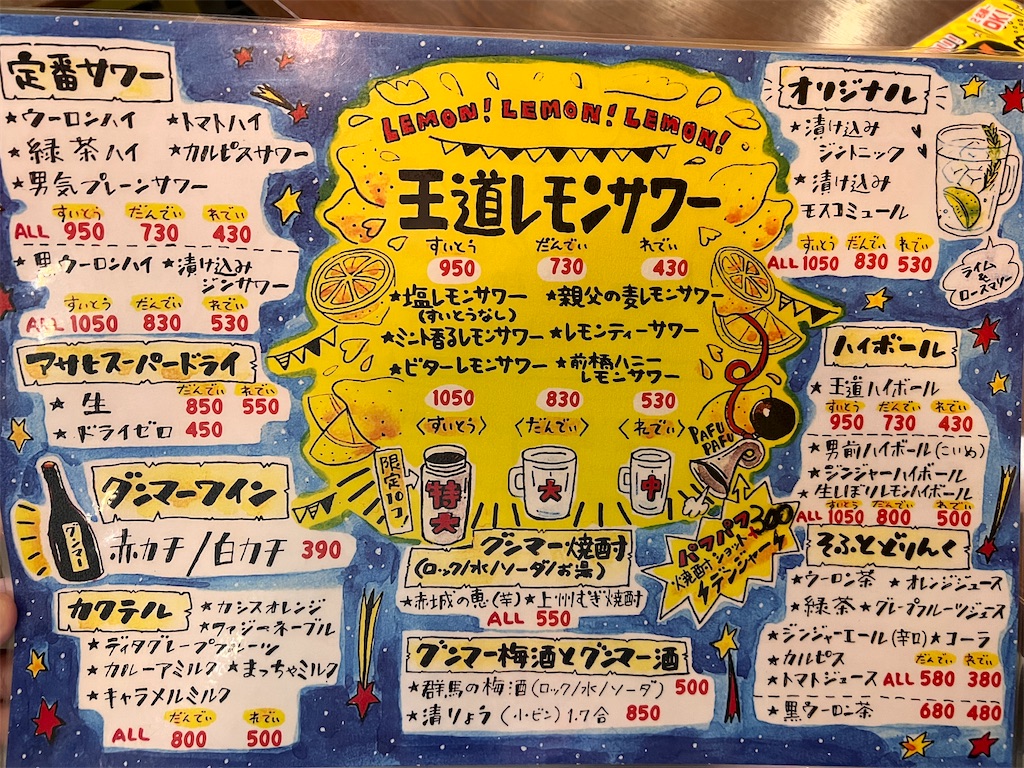 定番サワー
★ウーロンハイ ★トマトハイ
★緑茶ハイ ★カルピスサワー
★男気プレーンサワー
すいとう だんでぃ れでい
ALL 950 730 430
★黒ウーロンハイ ★漬け込み
ジンサワー
すいとう だんでぃ れでい
ALL 1050 830 530
アサヒスーパードライ
だんでぃ れでい
★生 850 550
★ドライゼロ 450
グンマーワイン
グンマー
赤カチ/白カチ 390
カクテル
★カシスオレンジ
★ファジーネーブル
★ディタグレープフルーツ
★カルーアミルク ★まっちゃミルク
★キャラメルミルク
だんでぃ れでい
ALL 800 500
LEMON! LEMON! LEMON!
王道レモンサワー
すいとう だんでぃ れでい
950 730 430
★塩レモンサワー ★親父の麦レモンサワー
(すいとうなし)
★ミント香るレモンサワー ★レモンティーサワー
★ビターレモンサワー ★前橋ハニー
レモンサワー
1050 830 530
〈すいとう〉 〈だんでい〉 〈れでい〉
限定10コ!
特大 大 中
PAFU
PAFU
パフパフ 300
焼酎ショット
テンジャー
グンマー焼酎
(ロック/水/ソーダ/お湯)
★赤城の恵(芋) ★上州むぎ焼酎
ALL 550
グンマー梅酒とグンマー酒
★群馬の梅酒(ロック/水/ソーダ) 500
★清りょう(小ビン)1.7合 850
オリジナル
★漬け込み
ジントニック
★漬け込み
モスコミュール
すいとう だんでぃ れでい
ALL 1050 830 530
ライム
&
ローズマリー
ハイボール
★王道ハイボール
すいとう だんでぃ れでい
950 730 430
★男前ハイボール(こいめ)
★ジンジャーハイボール
★生しぼりレモンハイボール
すいとう だんでぃ れでい
ALL 1050 800 500
そふとどりんく
★ウーロン茶 ★オレンジジュース
★緑茶 ★グレープフルーツジュース
★ジンジャーエール(辛口) ★コーラ
★カルピス だんでぃ れでい
★トマトジュース ALL 580 380
★黒ウーロン茶 680 480
OK!